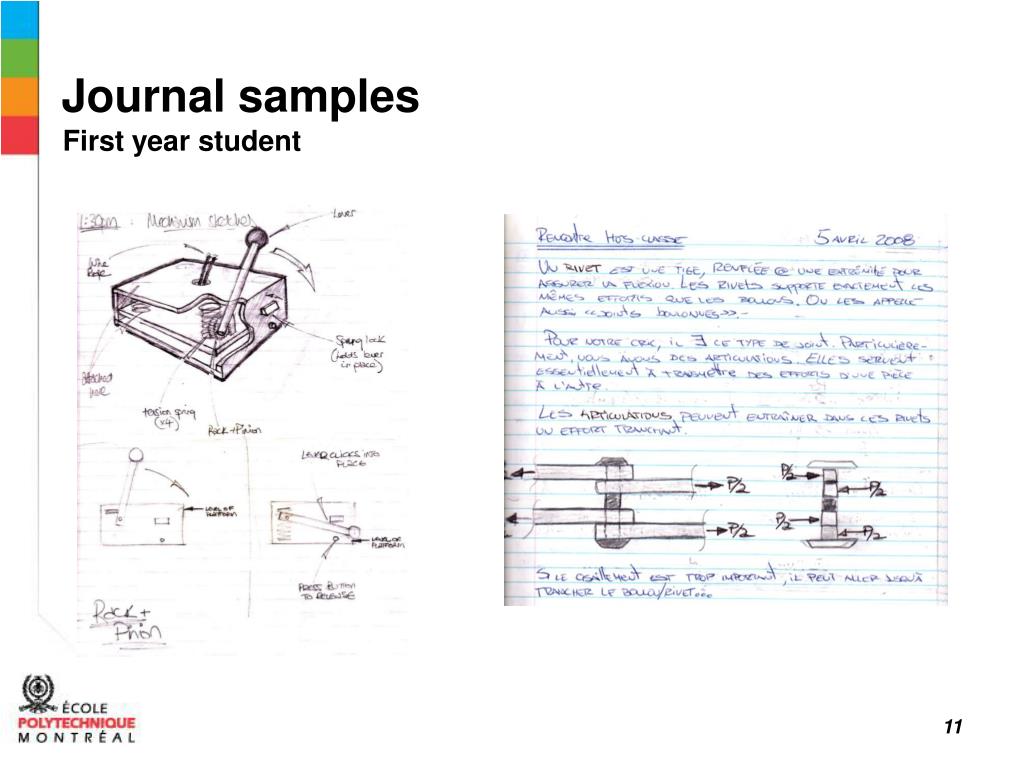 Journal samples
First year student
1:30pm : Mechanism sketches
Lever
Wire
Rope
Spring lock
(holds lever
in place)
Attachment
hole
tension spring
(x4)
Rack+Pinion
LEVER CLICKS INTO
PLACE
LEVEL OF
PLATFORM
LEVEL OF
PLATFORM
PRESS BUTTON
TO RELEASE
Rack +
Pinion
RENCONTRE HORS-CLASSE
5 AVRIL 2008
UN RIVET EST UNE TIGE, RENFLÉE @ UNE EXTRÉMITÉ POUR
ASSURER LA FLEXION. LES RIVETS SUPPORTE EXACTEMENT LES
MÊMES EFFORTS QUE LES BOULONS. ON LES APPELLE
AUSSI <<JOINTS BOULONNÉS>>.-
POUR NOTRE CRIC, IL ∃ CE TYPE DE JOINT. PARTICULIÈRE-
MENT, NOUS AVONS DES ARTICULATIONS. ELLES SERVENT
ESSENTIELLEMENT À TRANSMETTRE DES EFFORTS D'UNE PIÈCE
À L'AUTRE.
LES ARTICULATIONS, PEUVENT ENTRAÎNER DANS LES RIVETS
UN EFFORT TRANCHANT.
P/2
P/2
P/2
P/2
P/2
P/2
SI LE CISAILLEMENT EST TROP IMPORTANT, IL PEUT ALLER JUSQU'À
TRANCHER LE BOULON/RIVET...
ÉCOLE
POLYTECHNIQUE
MONTRÉAL
11